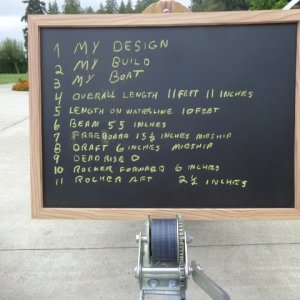 1 MY DESIGN
2 MY BUILD
3 MY BOAT
4 OVERALL LENGTH 11 FEET 11 INCHES
5 LENGTH ON WATERLINE 10 FEET
6 BEAM 55 INCHES
7 FREEBOARD 15 1/2 INCHES MIDSHIP
8 DRAFT 6 INCHES MIDSHIP
9 DEADRISE 0
10 ROCKER FORWARD 6 INCHES
11 ROCKER AFT 2 1/2 INCHES